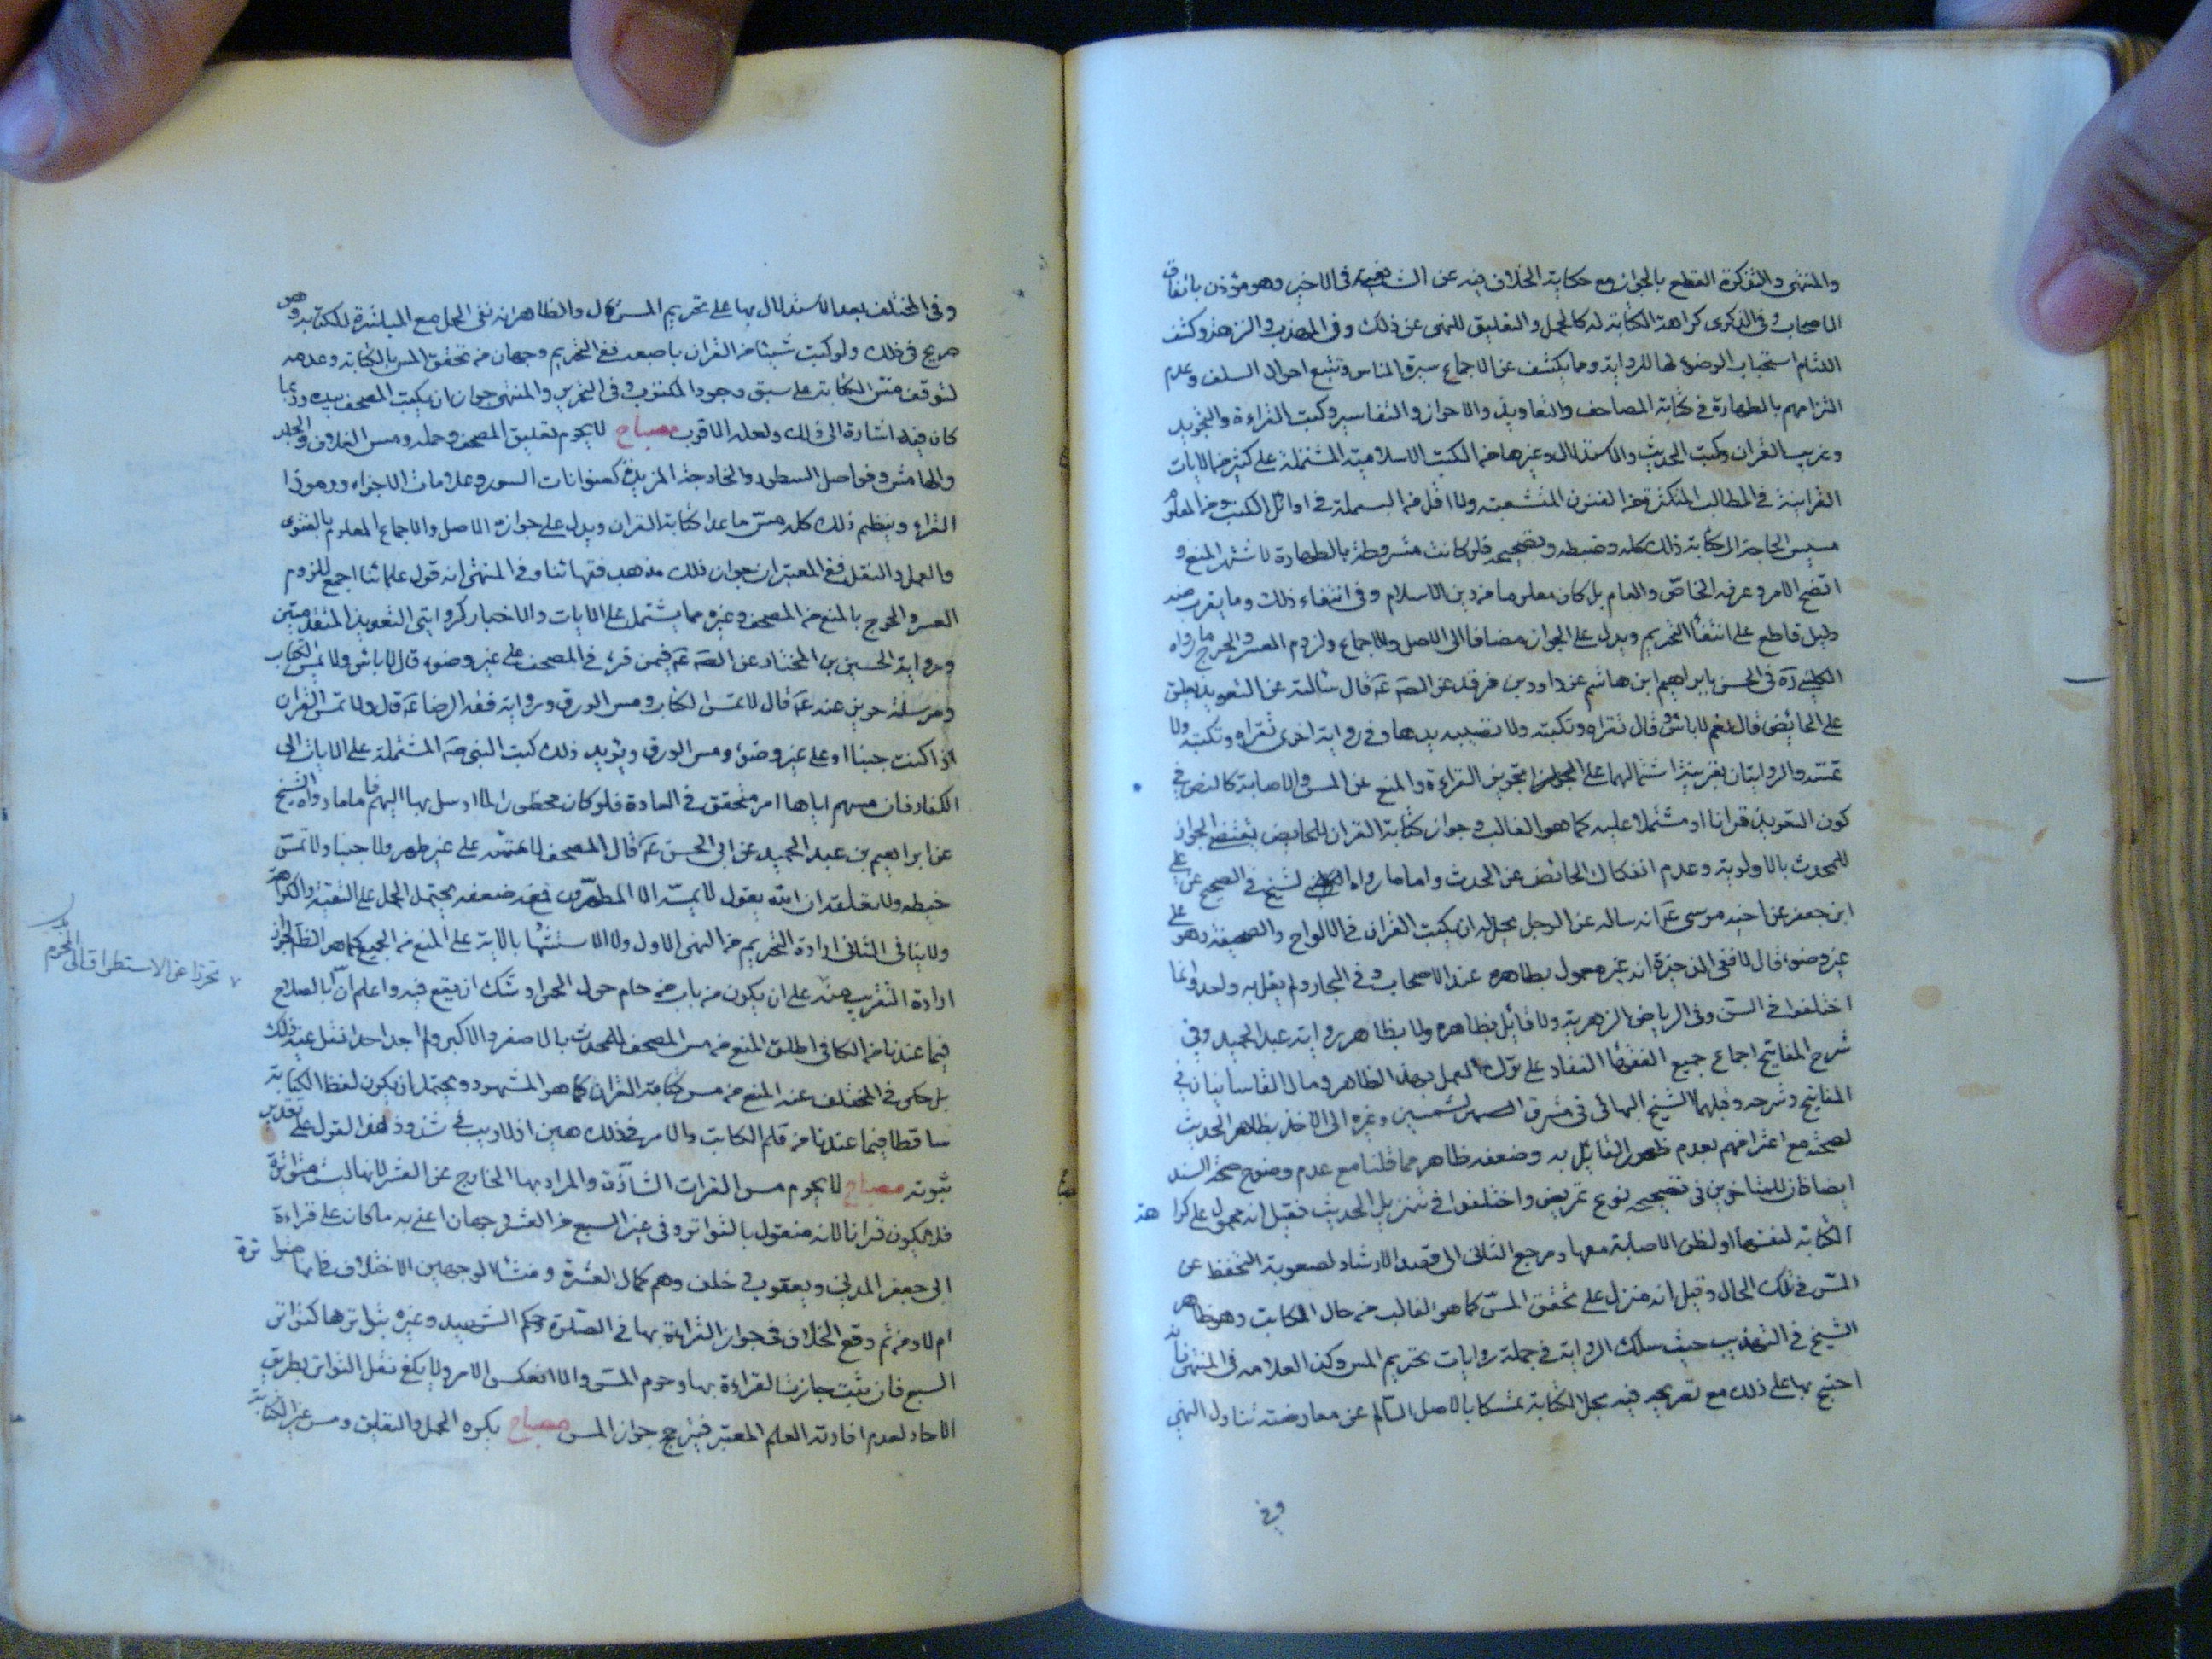 والمنتهى والتذكرة القطع بالجواز مع حكاية الخلاف فيه عن الشافعية في الاخير وهو مؤذن باتفاق
الاصحاب وفي الذكرى كراهة الكتابة له كالحمل والتعليق للنهى عن ذلك وفي المهذب والزهد وكشف
اللثام استحباب الوضوء لها للرواية ومما يكشف عن الاجماع سيرة الناس وتتبع احوال السلف وعدم
التزامهم بالطهارة في كتابة المصاحف والتعاويذ والاحراز والتفاسير وكتب القراءة والتجويد
وغريب القران وكتب الحديث والاستدلال وغيرها من الكتب الاسلامية المشتملة على كثير من الايات
القرانية في المطالب المتكثرة من الفنون المتشعبة ولا اقل من البسملة في اوائل الكتب ومن المعلوم
مسيس الحاجة الى كتابة ذلك كله وضبطه وتصحيحه فلو كانت مشروطة بالطهارة لاشتهر المنع و
اتضح الامر وعرفه الخاص والعام بل كان معلوما من دين الاسلام وفي انتفاء ذلك وما يقرب منه
دليل قاطع على انتفاء التحريم ويدل على الجواز مضافا الى الاصل والاجماع ولزوم العسر والحرج ما رواه
الكليني ره في الحسن بابراهيم ابن هاشم عن داود بن فرقد عن الصه عه قال سالته عن التعويذ يعلق
على الحائض قال نعم لا باس وقال تقراه وتكتبه ولا تصيبه يدها وفي رواية اخرى تقراه وتكتبه ولا
تمسه والروايتان بقرينة اشتمالهما على تجويز القراءة والمنع عن المس والاصابة كالنص في
كون التعويذ قرانا او مشتملا عليه كما هو الغالب وجواز كتابة القران للحايض يقتضي الجواز
للمحدث بالاولوية وعدم انفكاك الحائض عن الحدث واما ما رواه الشيخ في الصحيح عن علي
ابن جعفر عن اخيه موسى عه انه ساله عن الرجل يحل له ان يكتب القران في الالواح والصحيفة وهو على
غير وضوء قال لا ففي الذخيرة انه غير معمول بظاهره عند الاصحاب وفي البحار ولم يقل به واحد وانما
اختلفوا في المس وفي الرياض الزهرية ولا قائل بظاهره ولا بظاهر رواية عبد الحميد وفي
شرح المفاتيح اجماع جميع الفقهاء النقاد على ترك العمل بهذا الظاهر ومال القاسانيان في
المفاتيح وشرحه وقبلهما الشيخ البهائي في مشرق الشمسين وغيره الى الاخذ بظاهر الحديث
لصحته مع اعترافهم بعدم ظهور القايل به وضعفه ظاهر مما قلنا مع عدم وضوح صحة السند
ايضا فان للمتاخرين في تصحيحه نوع تمريض واختلفوا في تنزيل الحديث فقيل انه محمول على كراهة
الكتابة لنفسها او لظن الاصابة معها ومرجع الثاني الى قصد الارشاد لصعوبة التحفظ عن
المس في تلك الحال وقيل انه منزل على تحقق المس كما هو الغالب من حال الكاتب وهو ظاهر
الشيخ في التهذيب حيث سلك الرواية في جملة روايات تحريم المس وكذا العلامه في المنتهى فانه
احتج بها على ذلك مع تصريحه فيه بحل الكتابة تمسكا بالاصل السالم عن معارضته تناول النهي
وفي
وفي المختلف بعد الاستدلال بها على تحريم المس قال والظاهر انه نفى الحل مع المباشرة للكتابة وهو
صريح في ذلك ولو كتب شيئا من القران باصبعه ففي التحريم وجهان من تحقق المس بالكتابة وعدمه
لتوقف مس الكتابة على سبق وجود المكتوب وفي التحرير والمنتهى جواز ان يكتب المصحف بيده وربما
كان فيه اشارة الى ذلك ولعله الاقرب مصباح لا يحرم تعليق المصحف وحمله ومس الغلاف والجلد
والهامش وفواصل السطور والخارجة المزيدة كعنوانات السور وعلامات الاجزاء ورموز
القراء وينظم ذلك كله مس ما عدا كتابة القران ويدل على جوازه الاصل والاجماع المعلوم بالفتوى
والعمل والنقل ففي المعتبر ان جواز ذلك مذهب فقهائنا وفي المنتهى انه قول علمائنا اجمع للزوم
العسر والحرج بالمنع من المصحف وغيره مما يشتمل على الايات والاخبار كروايتي التعويذ المتقدمتين
ورواية الحسين بن المختار عن الصه عه فيمن قرء في المصحف على غير وضوء قال لا باس ولا يمس الكتاب
ومرسلة حريز عنه عه قال لا تمس الكتاب ومس الورق ورواية فقه الرضا عه قال ولا تمس القران
اذا كنت جنبا او على غير وضوء ومس الورق ويؤيد ذلك كتب النبي صه المشتملة على الايات الى
الكفار فان مسهم اياها امر متحقق في العادة فلو كان محظورا لما ارسل بها اليهم فاما ما رواه الشيخ
عن ابراهيم بن عبد الحميد عن ابي الحسن عه قال المصحف لا تمسه على غير طهر ولا جنبا ولا تمس
خيطه ولا تعلقه ان الله يقول لا يمسه الا المطهرون فمع ضعفه يحتمل الحمل على التقية والكراهة
ولا ينافي الثاني ارادة التحريم من النهى الاول ولا الاستشهاد بالاية على المنع من الجميع كما هو الظاهر لجواز
ارادة التقريب منه على ان يكون من باب من حام حول الحمى اوشك ان يقع فيه واعلم ان ابا الصلاح
فيما عندنا من الكافي اطلق المنع من مس المصحف للمحدث بالاصغر والاكبر ولم اجد احدا نقل عنه ذلك
بل حكى في المختلف عنه المنع من مس كتابة القران كما هو المشهور ويحتمل ان يكون لفظ الكتابة
ساقطا فيما عندنا من قلم الكاتب والامر في ذلك هين اذ لا ريب في شذوذ هذا القول على تقدير
ثبوته مصباح لا يحرم مس القرات الشاذة والمراد بها الخارج عن العشر لانها ليست متواترة
فلا يكون قرانا لانه منقول بالتواتر وفي غير السبع من العشر وجهان اعني به ما كان على قراءة
ابي جعفر المدني ويعقوب وخلف وهم كمال العشرة ومنشا الوجهين الاختلاف في انها متواترة
ام لا ومن ثم وقع الخلاف في جواز القراءة بها في الصلوة وحكم الشهيد وغيره بتواترها كتواتر
السبع فان يثبت جازت القراءة بها وحرم المس والا انعكس الامر ولا يكفي نقل التواتر بطريق
الاحاد لعدم افادته العلم المعتبر فيترجح جواز المس مصباح يكره الحمل والتعليق ومس غير الكتابة
تحرزا عن الاستطراق الى المحرم